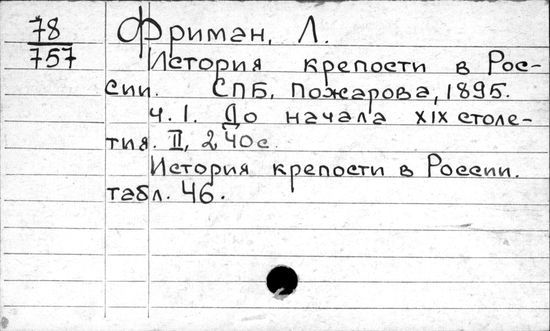 78
757
Фриман, Л.
История крепости в Рос-
сии. СПБ, Пожарова, 1895.
ч. I. До начала XIX столе-
тия. II, 240с.
История крепости в России.
табл. 46.